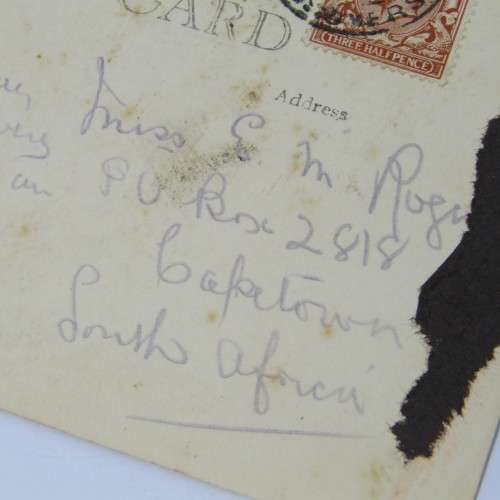 CARD
THREE HALFPENCE
Address
Miss E. M. Roge
very
an PO Box 2818
Capetown
South Africa